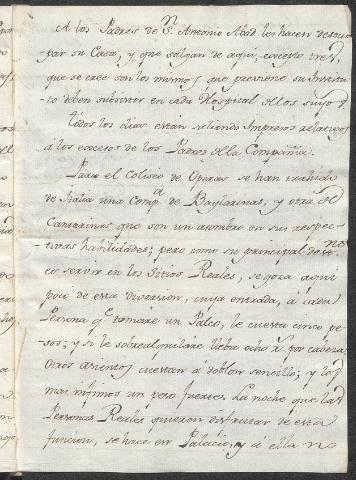 A los Padres de Sn. Antonio Abad los hacen desocu
par su Casa, y que salgan de aqui, excepto tres,
que se cree son los mismos, que previene su institu
to deben subsistir en cada Hospital de los suyos.
Todos los dias estan saliendo Impresos relativos
á los excesos de los Padres de la Compañia.
Para el Coliseo de Operas se han trahido
de Italia una Compa. de Baylarinas, y otra de
Cantarinas que son un asombro en sus respec-
tivas habilidades; pero como su principal des
co servir en los Sitios Reales, se goza aqui
poco de esta diversion, cuya entrada, á cada
Persona qe. tomare un Palco, le cuesta cinco pe-
sos; y si le sobrealquilare lleba ocho rs. por cabeza
otros asientos cuestan á doblon sencillo; y los
mas infimos un peso fuerte. La noche que las
Personas Reales quieren disfrutar de esta
funcion, se hace en Palacio, y á ella no